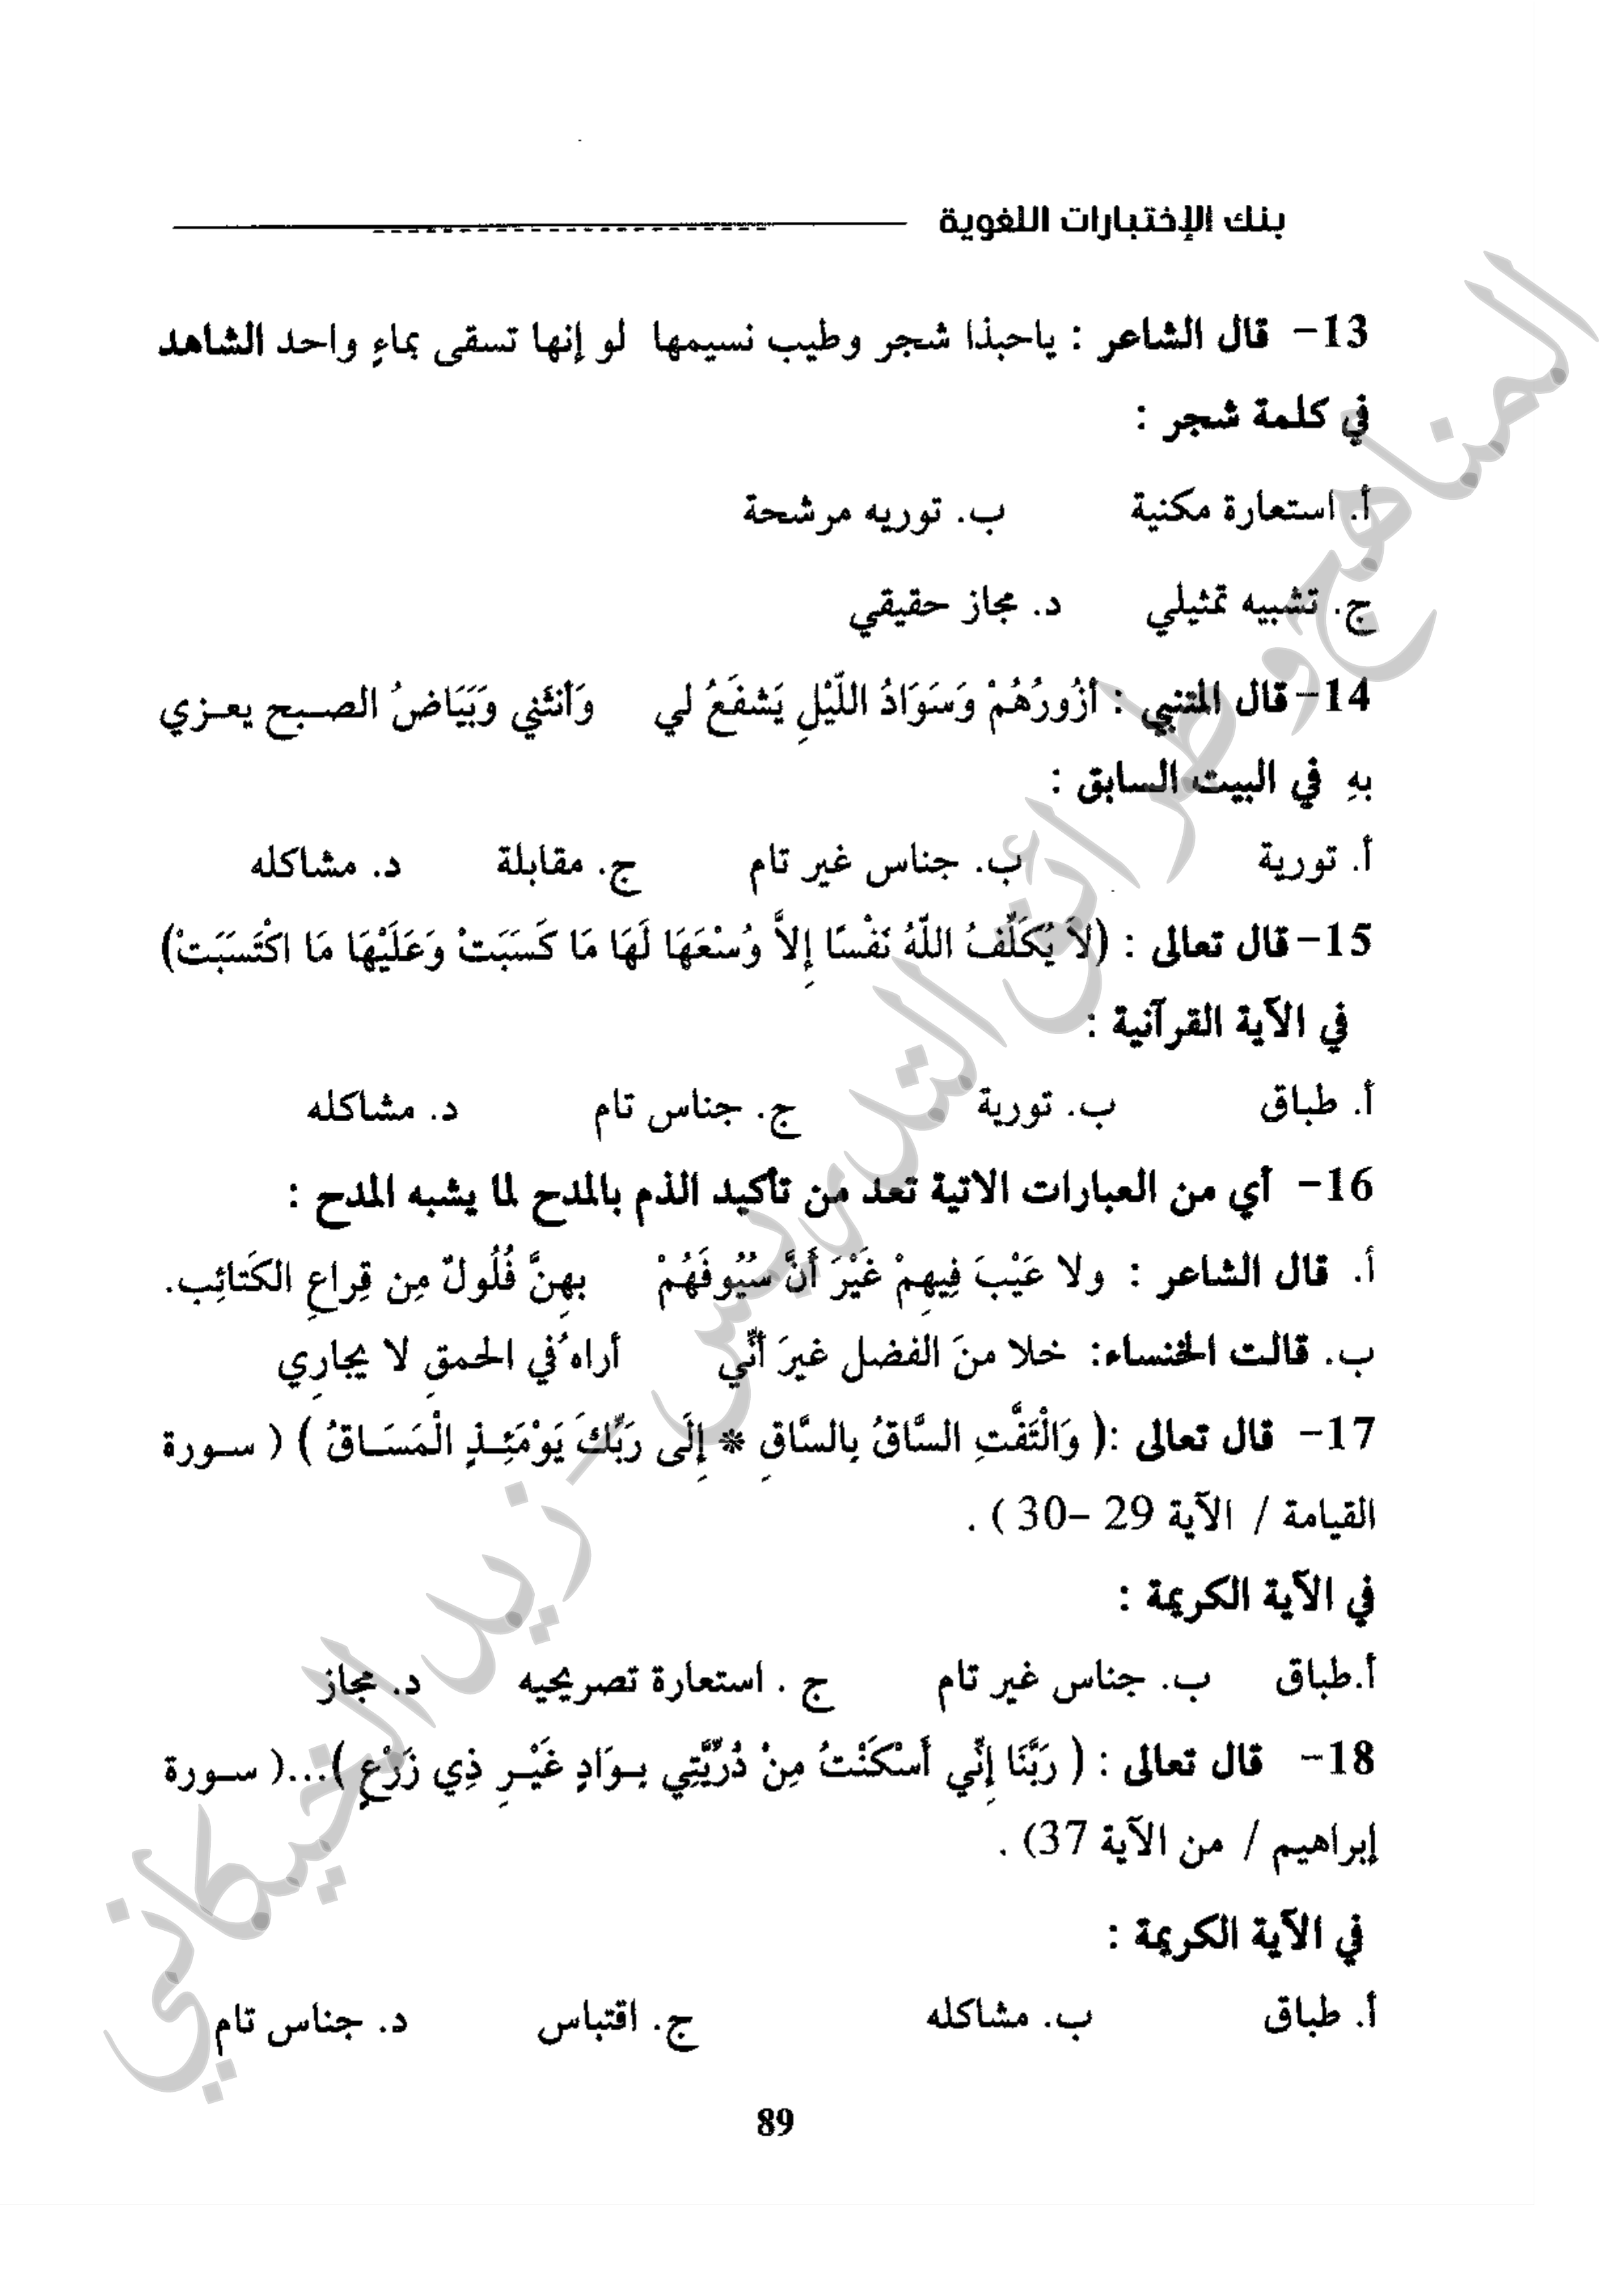 بنك الإختبارات اللغوية
13- قال الشاعر : ياحبذا شجر وطيب نسيمها لو إنها تسقى بماءٍ واحد الشاهد
في كلمة شجر :
أ. استعارة مكنية ب. توريه مرشحة
ج. تشبيه تمثيلي د. مجاز حقيقي
14- قال المتنبي : أزُورُهُمْ وَسَوَادُ اللّيْلِ يَشفَعُ لي وَأنثَني وَبَيَاضُ الصبح يعزي
بهِ في البيت السابق :
أ. تورية ب. جناس غير تام ج. مقابلة د. مشاكله
15- قال تعالى : (لاَ يُكَلِّفُ اللّهُ نَفْسًا إِلاَّ وُسْعَهَا لَهَا مَا كَسَبَتْ وَعَلَيْهَا مَا اكْتَسَبَتْ)
في الآية القرآنية :
أ. طباق ب. تورية ج. جناس تام د. مشاكله
16- أي من العبارات الاتية تعد من تأكيد الذم بالمدح لما يشبه المدح :
أ. قال الشاعر : ولا عَيْبَ فِيهِمْ غَيْرَ أَنَّ سُيُوفَهُمْ بهِنَّ فُلُولٌ مِن قِراعِ الكَتائِب.
ب. قالت الخنساء: خلا منَ الفضل غيرَ أنّي أراهُ في الحمقِ لا يجارِي
17- قال تعالى :( وَالْتَفَّتِ السَّاقُ بِالسَّاقِ * إِلَى رَبِّكَ يَوْمَئِذٍ الْمَسَاقُ ) ( سورة
القيامة / الآية 29 –30 ) .
في الآية الكريمة :
أ.طباق ب. جناس غير تام ج . استعارة تصريحيه د. مجاز
18- قال تعالى : ( رَبَّنَا إِنِّي أَسْكَنْتُ مِنْ ذُرِّيَّتِي بِوَادٍ غَيْرِ ذِي زَرْعٍ )...( سورة
إبراهيم / من الآية 37) .
في الآية الكريمة :
أ. طباق ب. مشاكله ج. اقتباس د. جناس تام
89
المناهج وطرائق التدريس - زيد الخيكاني